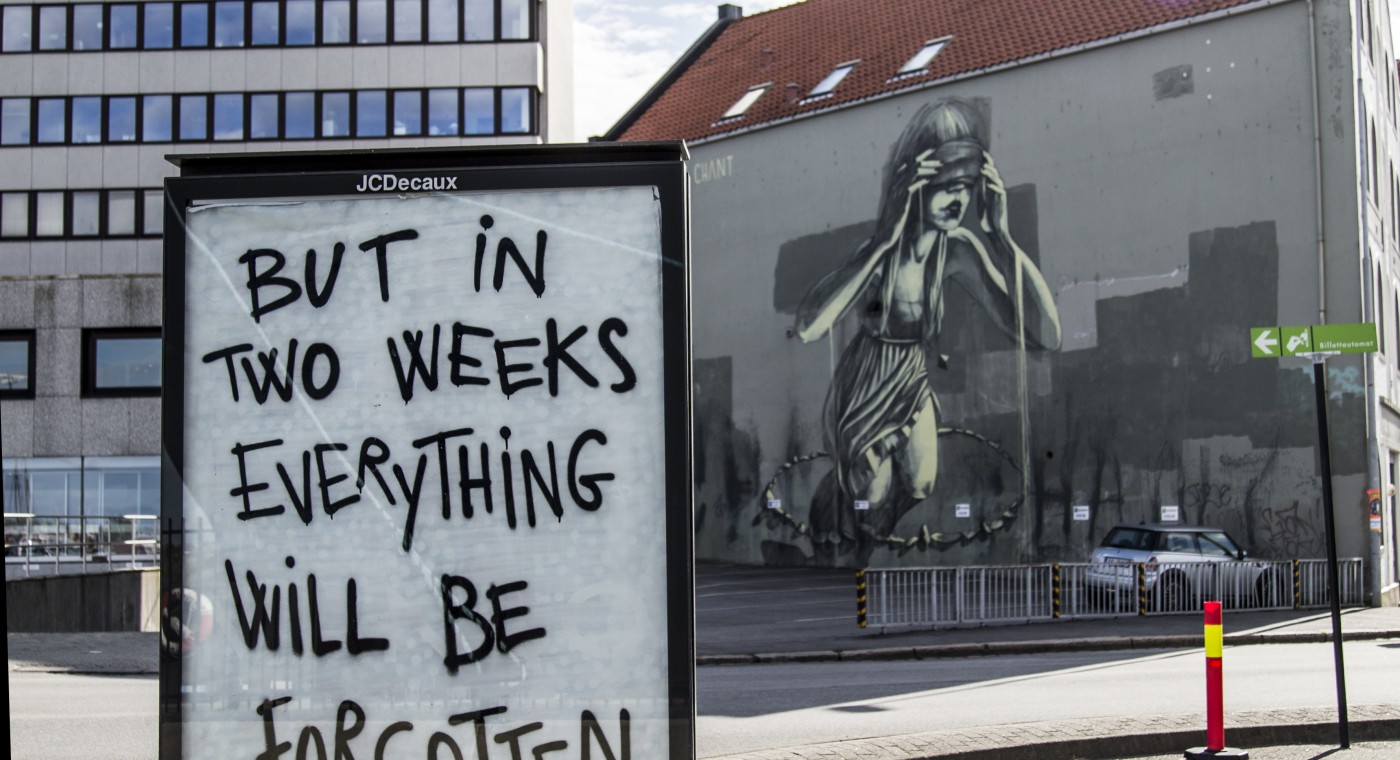 JCDecaux
BUT IN
TWO WEEKS
EVERYTHING
WILL BE
FORGOTTEN
CHANT
Billettautomat